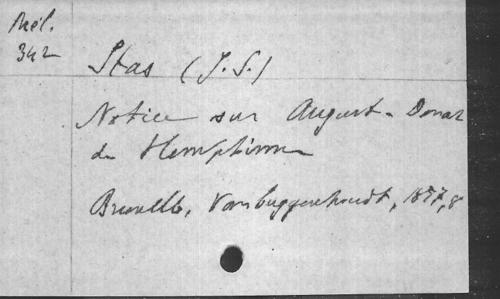 Mél.
342
Stas (J. S.)
Notice sur August-Donat
de Hemptinne
Bruxelles, Vanbuggenhoudt, 1857, 8